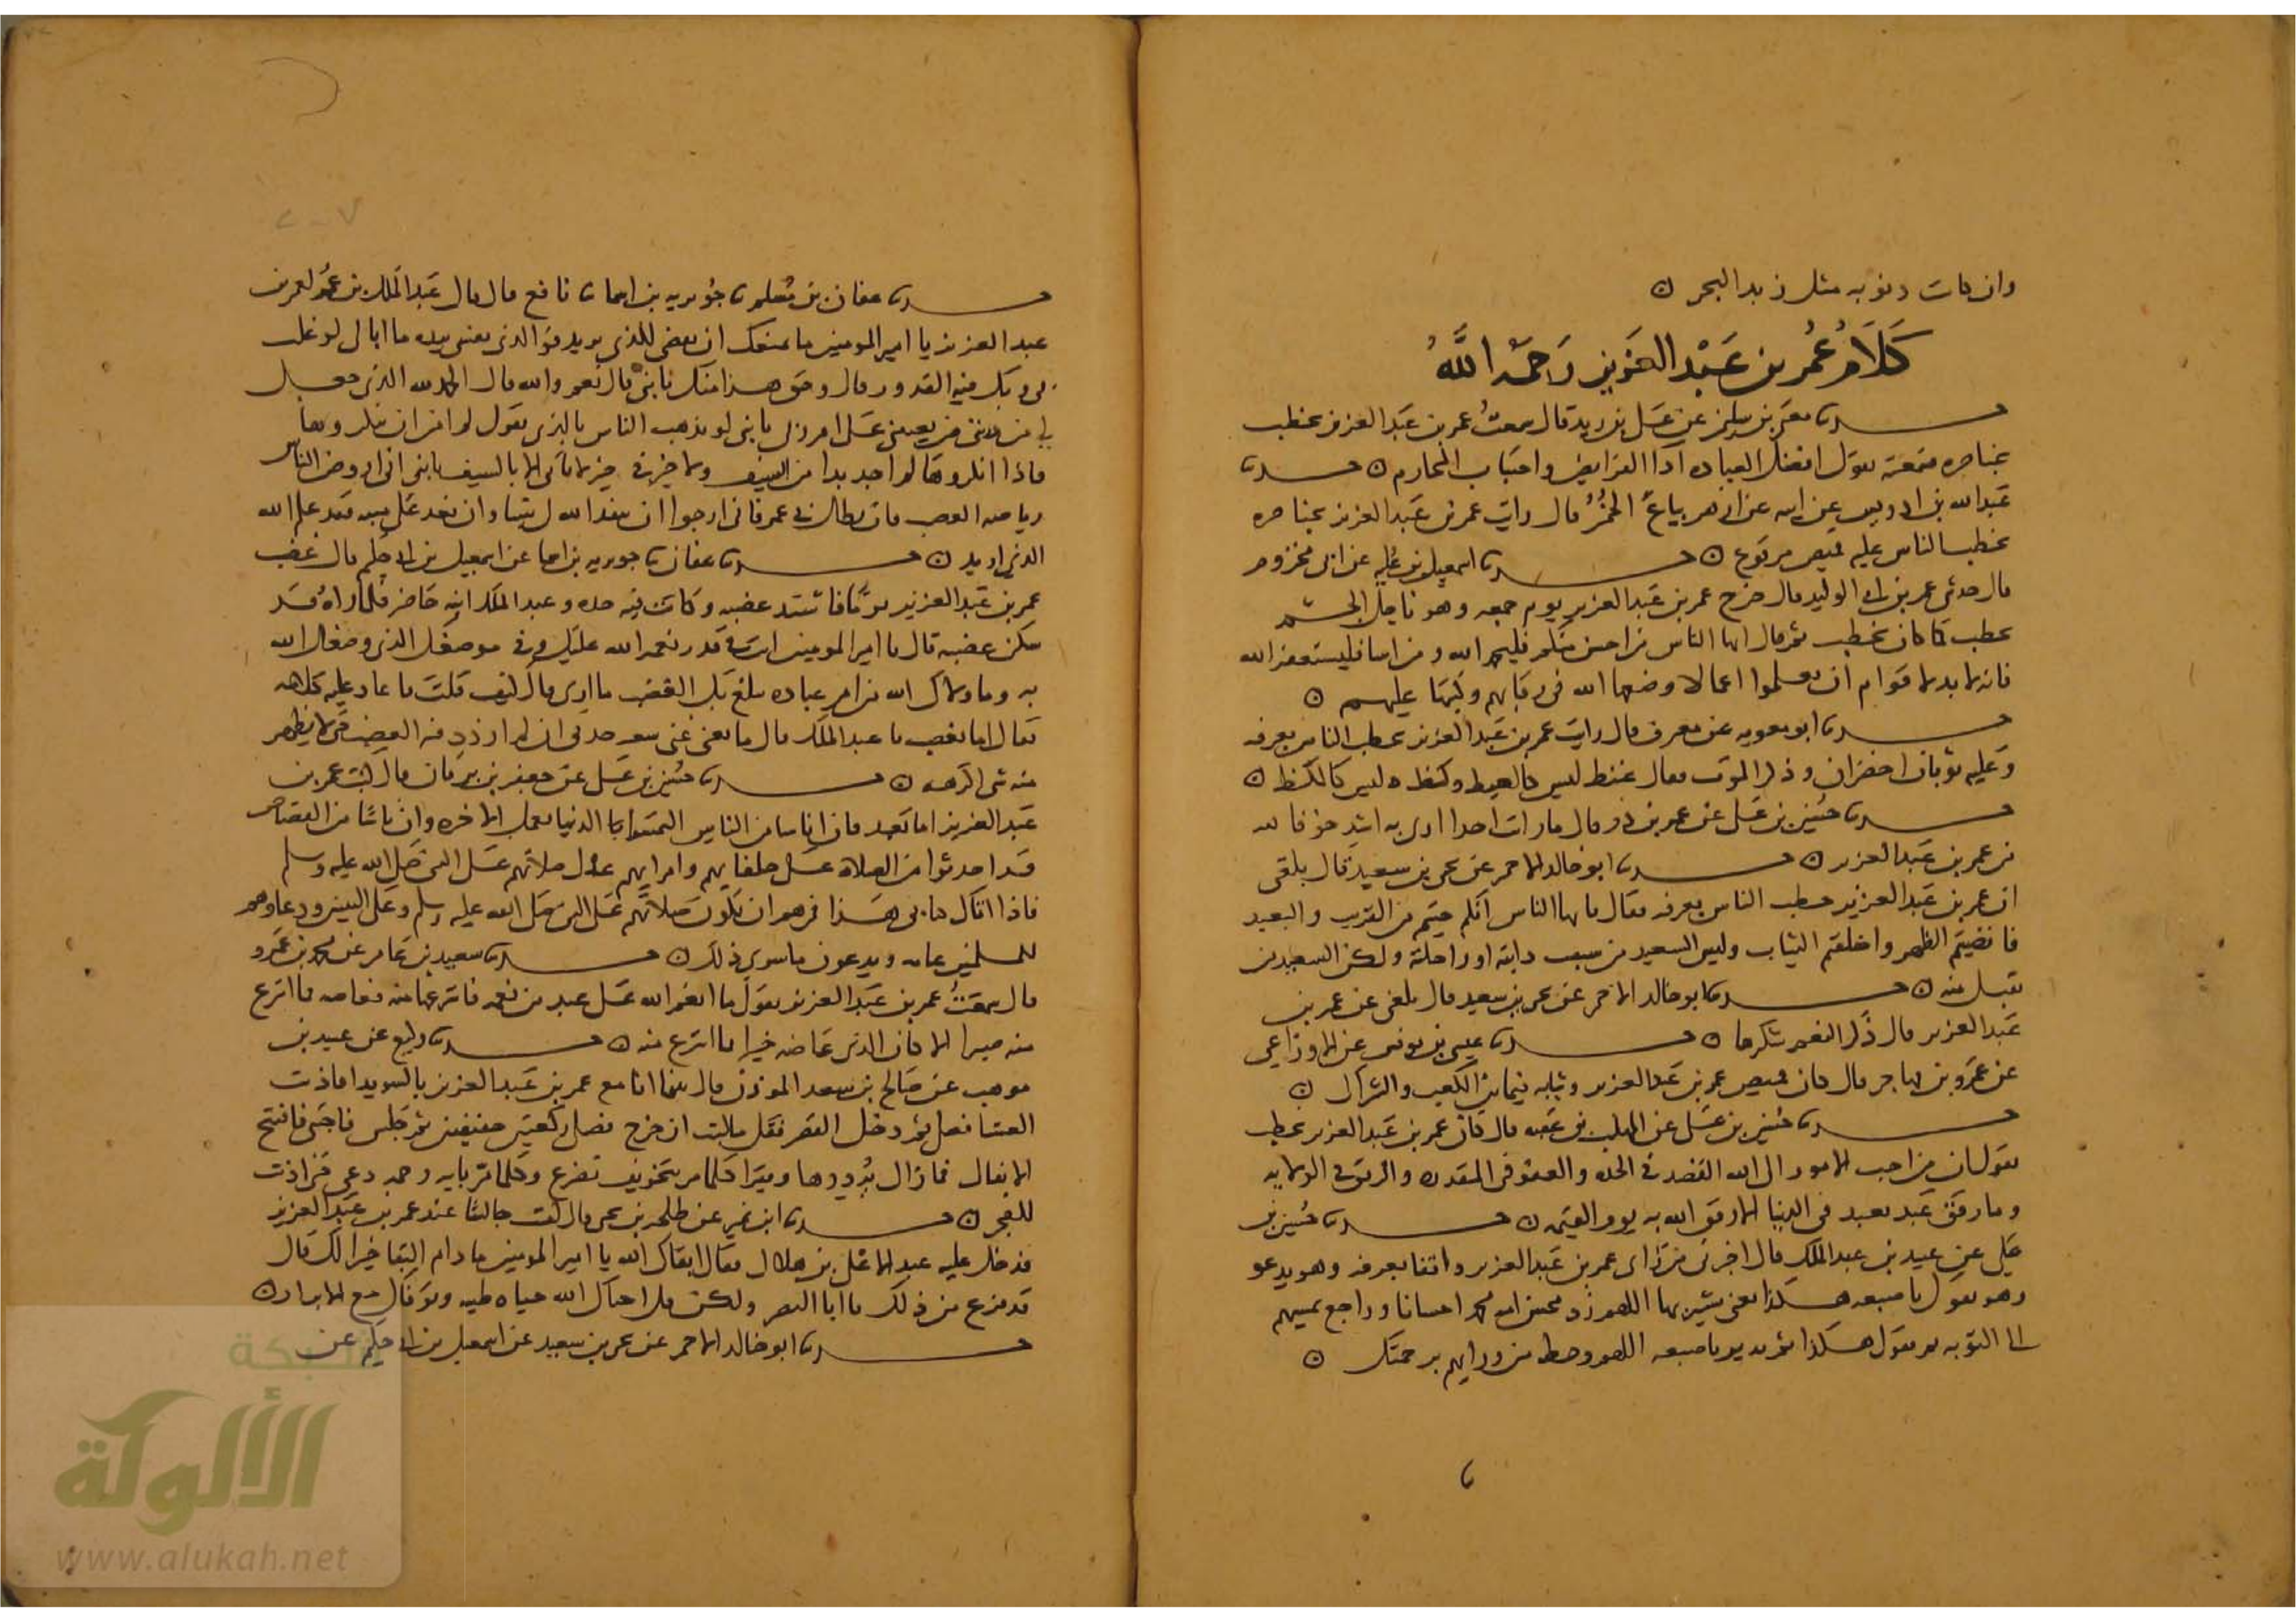 وان كانت ذنوبه مثل زبد البحر ن
كَلَام عُمر بن عَبْد العَزيز رَحمَه اللَّهُ
حدثنا معتمر بن سليمن عن علي بن زيد قال سمعتُ عمر بن عَبد العزيز يخطب
بخناصره سمعته يقول افضل العباده أدا الفرايض واجتناب المحارم ن حدثنا
عَبد الله بن ادريس عن ابيه عن ازهر بياع الخُمُر قال رايت عمر بن عَبد العزيز بخناصره
يخطب الناس عليه قميص مرقوع ن حدثنا اسمعيل بن عُليه عن ابي مخزوم
قال حدثني عمر بن ابي الوليد قال خرج عمر بن عبد العزيز يوم جمعه وهو ناحل الجسم
يخطب كما كان يخطب ثم قال ايها الناس من احسن منكم فليحمد الله ومن اسا فليستغفر الله
فانه لا بد لاقوام ان يعملوا اعمالا وضعها الله في رقابهم وكتبها عليهم ن
حدثنا ابو معويه عن مطرف قال رايت عمر بن عَبد العزيز يخطب الناس بعرفه
وعليه ثوبان اخضران وذكر الموت فقال غنظ ليس كالغنظ وكظ ليس كالكظ ن
حدثنا حسين بن علي عن عمر بن ذر قال ما رايت احدا ارى به اشد خوفا لله
من عمر بن عَبد العزيز ن حدثنا ابو خالد الاحمر عن يحيى بن سعيد قال بلغني
ان عمر بن عَبد العزيز خطب الناس بعرفه فقال يا ايها الناس انكم جيتم من القريب والبعيد
فانضيتم الظهر واخلقتم الثياب وليس السعيد من سبقت دابته او راحلته ولكن السعيد من
تقبل منه ن حدثنا ابو خالد الاحمر عن يحيى بن سعيد قال بلغني عن عمر بن
عَبد العزيز قال ذكر النعم شكرها ن حدثنا عيسى بن يونس عن الاوزاعي
عن عمرو بن مهاجر قال كان قميص عمر بن عَبد العزيز وثيابه فيما بين الكعب والشراك ن
حدثنا حسين بن علي عن المهلب بن عقبه قال كان عمر بن عَبد العزيز يخطب
يقول ان من احب الامور الى الله القصد في الجده والعفو في المقدره والرفق في الولايه
وما رفق عَبد بعبد في الدنيا الا رفق الله به يوم القيمه ن حدثنا حُسين بن
علي عن عبيد بن عبد الملك قال اخبرني من راى عمر بن عَبد العزيز واقفا بعرفه وهو يدعو
وهو يقول باصبعه هكذا يعني يشير بها اللهم زد محسن امه محمد احسانا وراجع بمسيهم
الى التوبه ثم يقول هكذا ثم يدير باصبعه اللهم وحط من ورايهم برحمتك ن
حدثنا عفان بن مسلم ثنا جُويريه بن اسما ثنا نافع قال قال عَبد الملك بن عُمَر لعمر بن
عبد العزيز يا امير المومنين ما يمنعك ان تمضي للذي تريد فو الذي نفسي بيده ما ابالي لو غلت
بي وبك فيه القدور قال وحق هذا منك يا بني قال نعم والله قال الحمد لله الذي جعل
لي من ذريتي من يعينني على امر ربي يا بني لو بدهت الناس بالذي تقول لم امن ان ينكروها
فاذا انكروها لم اجد بدا من السيف ولا خير في خير لا ياتي الا بالسيف يا بني اني اروض الناس
رياضه الصعب فان يطل بي عمر فاني ارجوا ان ينفذ الله لي شيا وان تعد علي منيه فقد علم الله
الذي اريد ن حدثنا عفان ثنا جويريه بن اسما عن اسمعيل بن ابي حكيم قال غضب
عمر بن عَبد العزيز يومًا فاشتد غضبه وكانت فيه حده وعبد الملك ابنه حاضر فلما راه قد
سكن غضبه قال يا امير المومنين انت في قدر نعمه الله عليك وفي موضعك الذي وضعك الله
به وما ولاك الله من امر عباده يبلغ بك الغضب ما ارى قال كيف قلتَ فاعاد عليه كلامه
فقال اما تغضب يا عبد الملك قال ما يغني عني سعه جوفي ان لم اردد فيه الغضب حتى لا يظهر
منه شي اكرهه ن حدثنا حُسين بن علي عن جعفر بن برقان قال كتب عمر بن
عَبد العزيز اما بعد فان اناسا من الناس التمسوا الدنيا بعمل الاخره وان ناسًا من القصاص
قد احدثوا من الصلاه على خلفايهم وامرايهم عدل صلاتهم على النبي صلى الله عليه وسلم
فاذا اتاك كتابي هذا فمرهم ان تكون صلاتهم على النبي صلى الله عليه وسلم وعلى النبيين ودعاوهم
للمسلمين عامه ويدعون ما سوى ذلك ن حدثنا سعيد بن عَامر عن محمد بن عَمرو
قال سمعتُ عمر بن عَبد العزيز يقول ما انعم الله على عبد من نعمه فانتزعها منه فعاضه مما انتزع
منه صبرا الا كان الذي عَاضه خيرا مما انتزع منه ن حدثنا وكيع عن عبيد بن
موهب عن صَالح بن سعيد الموذن قال بينما انا مع عمر بن عَبد العزيز بالسويدا فاذنت
العشا فصلى ثم دخل القصر فقل ما لبث ان خرج فصلى ركعتين خفيفتين ثم جَلس فاحتبى فافتتح
الانفال فما زال يُرددها ويقرا كلما مر بتخويف تضرع وكلما مر بايه رحمه دعى حتى اذنت
للفجر ن حدثنا ابن نمير عن طلحه بن يحيى قال كنت جالسًا عند عمر بن عَبد العزيز
فدخل عليه عبد الاعلى بن هلال فقال ابقاك الله يا امير المومنين ما دام البقا خيرا لك قال
قد فرغ من ذلك يا ابا النضر ولكن قل احياك الله حياه طيبه وتوفاك مع الابرار ن
حدثنا ابو خالد الاحمر عن يحيى بن سعيد عن اسمعيل بن ابي حكيم عن
شبكة
الألوكة
www.alukah.net